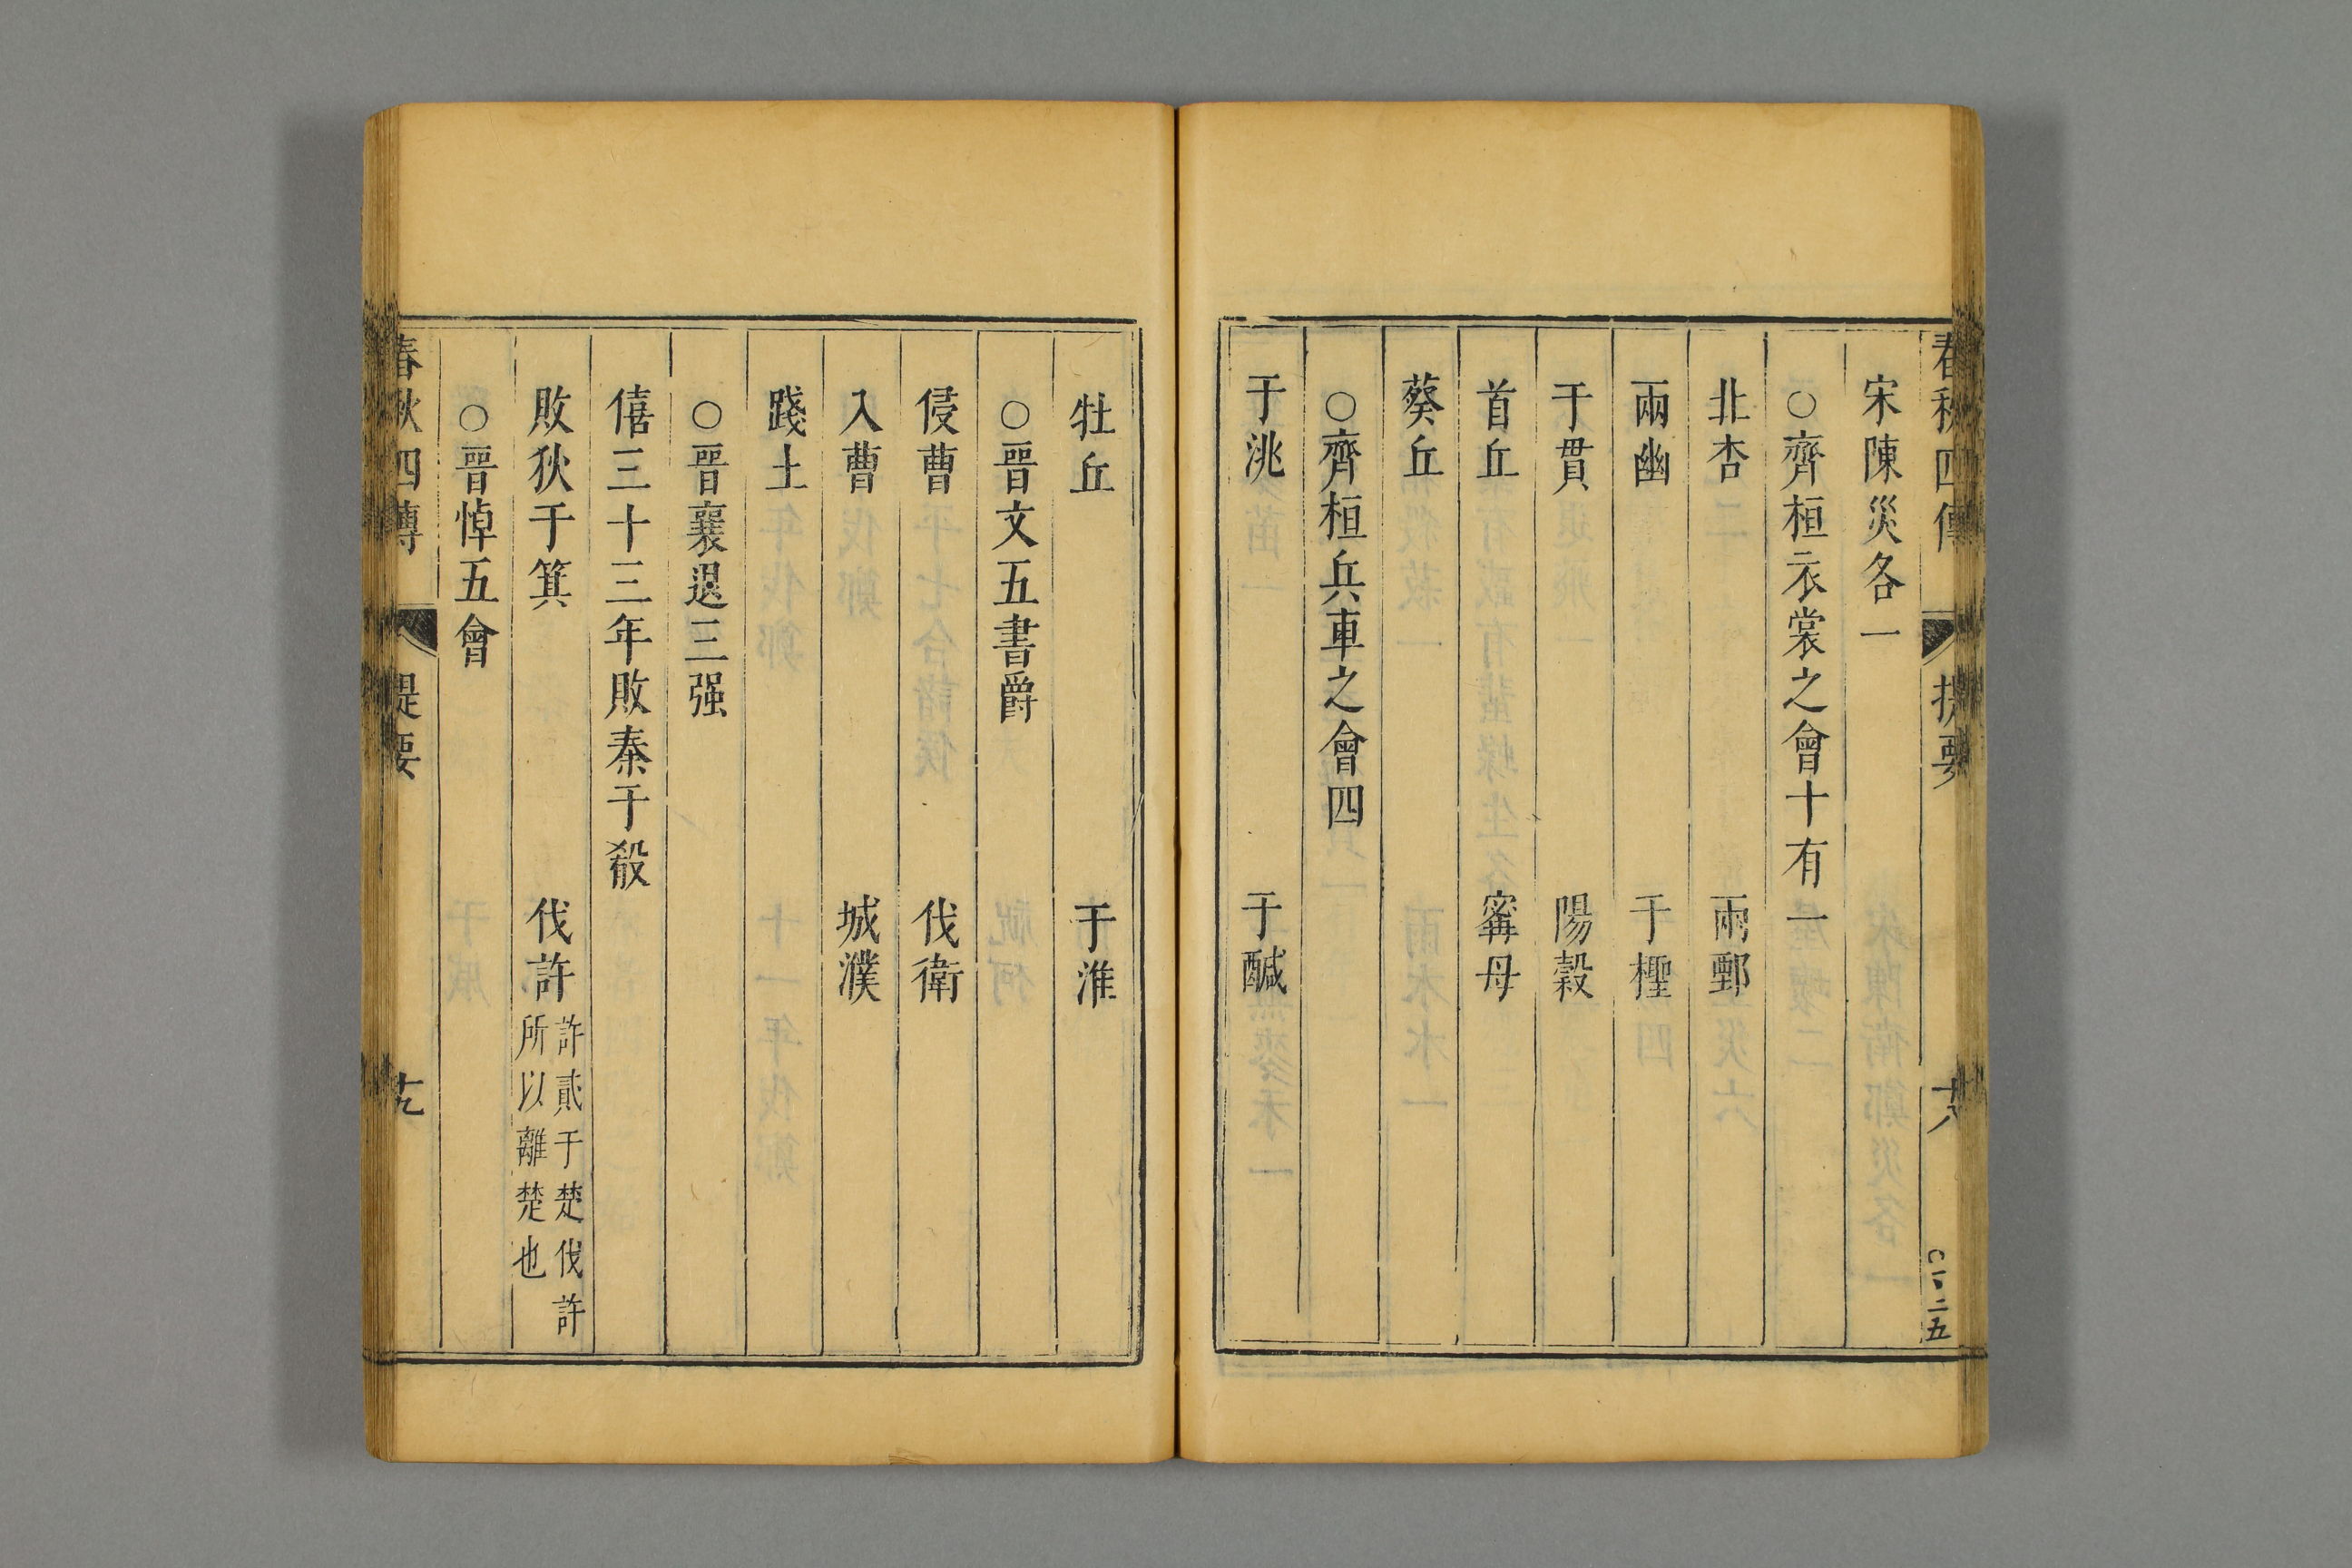 春秋四傳 提要 十八
宋陳災各一
○齊桓衣裳之會十有一
北杏 兩鄄
兩幽 于檉
于貫 陽穀
首丘 寗母
葵丘
○齊桓兵車之會四
于洮 于醎
牡丘 于淮
○晉文五書爵
侵曹 伐衛
入曹 城濮
踐土
○晉襄退三强
僖三十三年敗秦于殽
敗狄于箕 伐許 許貳于楚伐許
所以離楚也
○晉悼五會
春秋四傳 提要